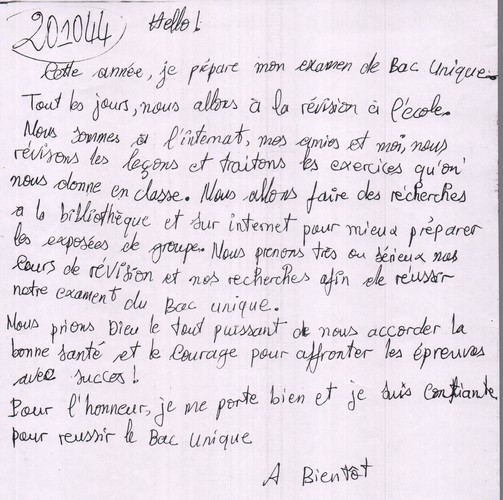 201044 Hello!
Cette année, je prépare mon examen de Bac Unique.
Tout les jours, nous allons à la révision à l'école.
Nous sommes à l'internat, mes amies et moi, nous
révisons les leçons et traitons les exercices qu'on
nous donne en classe. Nous allons faire des récherches
a la bibliothèque et sur internet pour mieux préparer
les exposées de groupe. Nous prenons très au sérieux nos
cours de révision et nos recherches afin de réussir
notre exament du Bac unique.
Nous prions Dieu le tout puissant de nous accorder la
bonne santé et le courage pour affronter les épreuves
avec succes!
Pour l'honneur, je me porte bien et je suis confiante
pour reussir le Bac Unique
A Bientôt